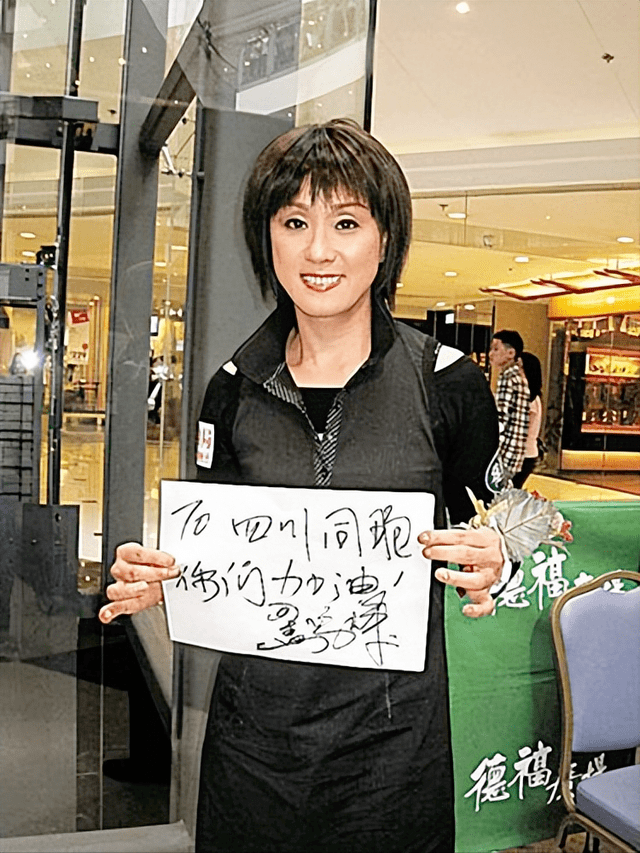 To 四川同胞
你们加油!
德福
德福廣場